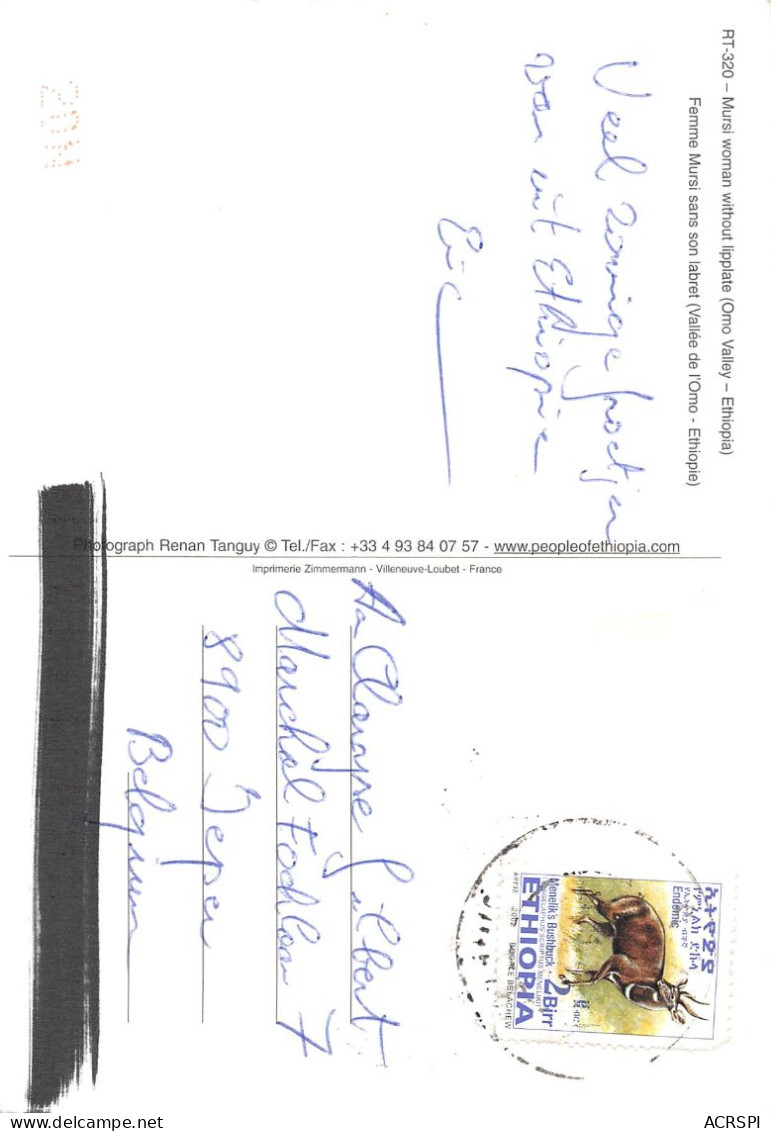 RT-320 – Mursi woman without lipplate (Omo Valley – Ethiopia)
Femme Mursi sans son labret (Vallée de l'Omo - Ethiopie)
Veel zonnige groetjes
van uit Ethiopie
Eric
Photograph Renan Tanguy © Tel./Fax : +33 4 93 84 07 57 - www.peopleofethiopia.com
Imprimerie Zimmermann - Villeneuve-Loubet - France
Gilbert
8900 Ieper
Belgium
ኢትዮጵያ
Endemic
Menelik's Bushbuck
2 Birr
ETHIOPIA
2002
BELACHEW
ACRSPI